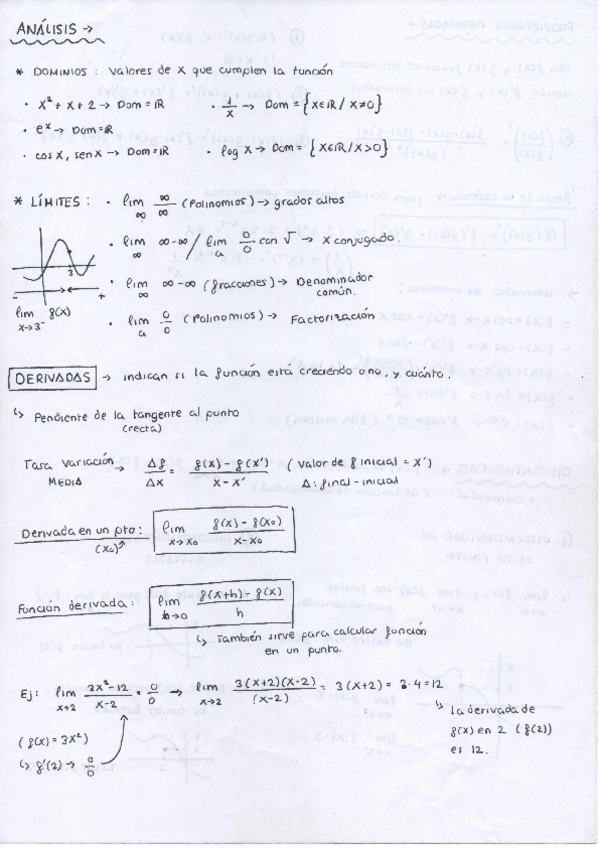 ANÁLISIS →
* DOMINIOS : Valores de x que cumplen la función
· x² + x + 2 → Dom = ℝ · 1/x → Dom = {x∈ℝ / x≠0}
· eˣ → Dom = ℝ
· cos x, sen x → Dom = ℝ · log x → Dom = {x∈ℝ / x>0}
* LÍMITES : · lim ∞ ∞/∞ (Polinomios) → grados altos
· lim ∞ ∞-∞ / lim a 0/0 con √ → x conjugado.
3
- +
· lim ∞ ∞-∞ (fracciones) → Denominador
común.
lim x→3⁻ f(x)
· lim a 0/0 (Polinomios) → Factorización
DERIVADAS → indican si la función está creciendo o no, y cuánto.
↳ Pendiente de la tangente al punto
(recta)
Tasa variación MEDIA → Δf/Δx = f(x) - f(x')/x - x' (valor de f inicial = x')
Δ: final - inicial
Derivada en un pto: lim x→x₀ f(x) - f(x₀)/x - x₀
(x₀)
Función derivada: lim h→0 f(x+h) - f(x)/h
↳ También sirve para calcular función
en un punto.
Ej: lim x→2 3x²-12/x-2 = 0/0 → lim x→2 3(x+2)(x-2)/(x-2) = 3(x+2) = 3·4 = 12
↳ La derivada de
f(x) en 2 (f(2))
es 12.
(f(x) = 3x²)
↳ f'(2) → 0/0